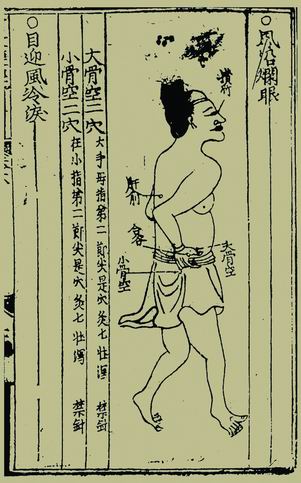 ○風沿爛眼
攢竹
肝俞
合谷
大骨空
小骨空
大骨空二穴 大手母指第二節尖是穴灸七壯瀉 禁針
小骨空二穴 在小指第二節尖是穴灸七壯瀉 禁針
○目迎風冷淚